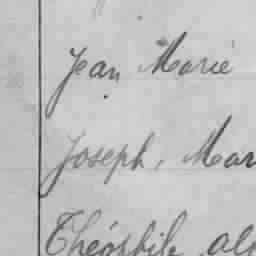 Jean Marie
Joseph, Mar
Théophile al